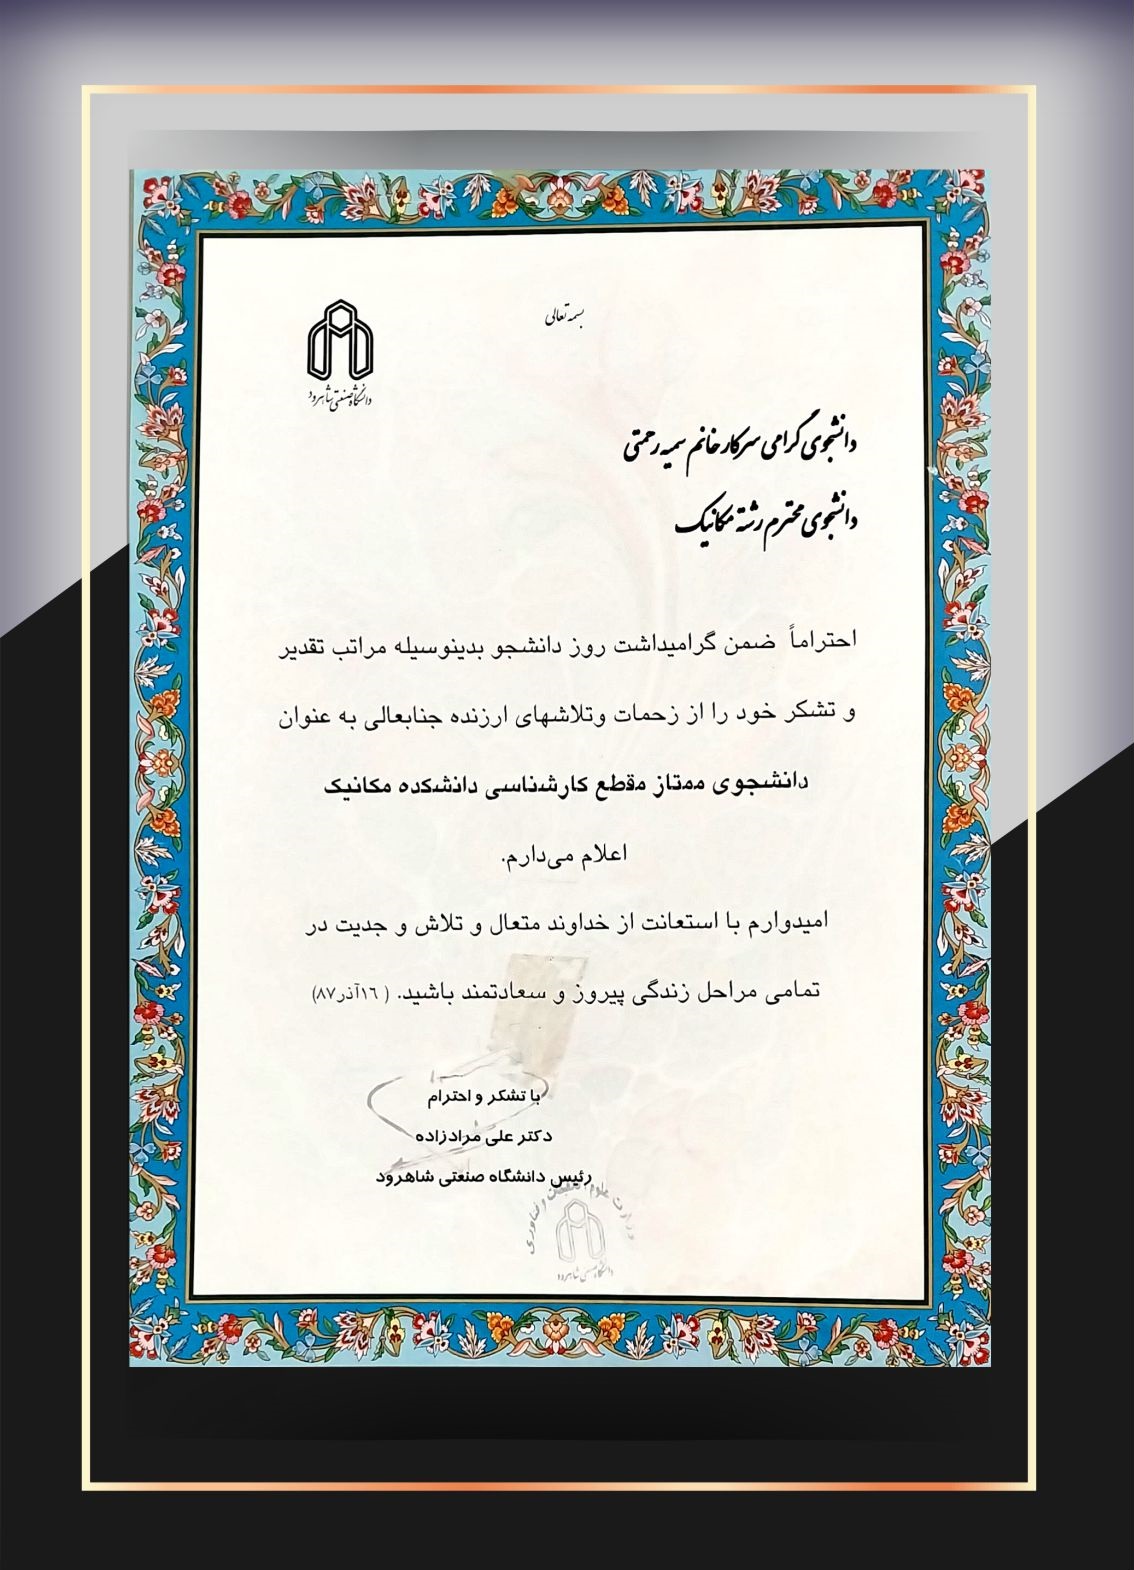 بسمه تعالی
دانشگاه صنعتی شاهرود
دانشجوی گرامی سرکار خانم سمیه رحمتی
دانشجوی محترم رشته مکانیک
احتراماً ضمن گرامیداشت روز دانشجو بدینوسیله مراتب تقدیر
و تشکر خود را از زحمات وتلاشهای ارزنده جنابعالی به عنوان
دانشجوی ممتاز مقطع کارشناسی دانشکده مکانیک
اعلام می‌دارم.
امیدوارم با استعانت از خداوند متعال و تلاش و جدیت در
تمامی مراحل زندگی پیروز و سعادتمند باشید. ( ١٦آذر٨٧)
با تشکر و احترام
دکتر علی مرادزاده
رئیس دانشگاه صنعتی شاهرود
وزارت علوم تحقیقات و فناوری
دانشگاه صنعتی شاهرود